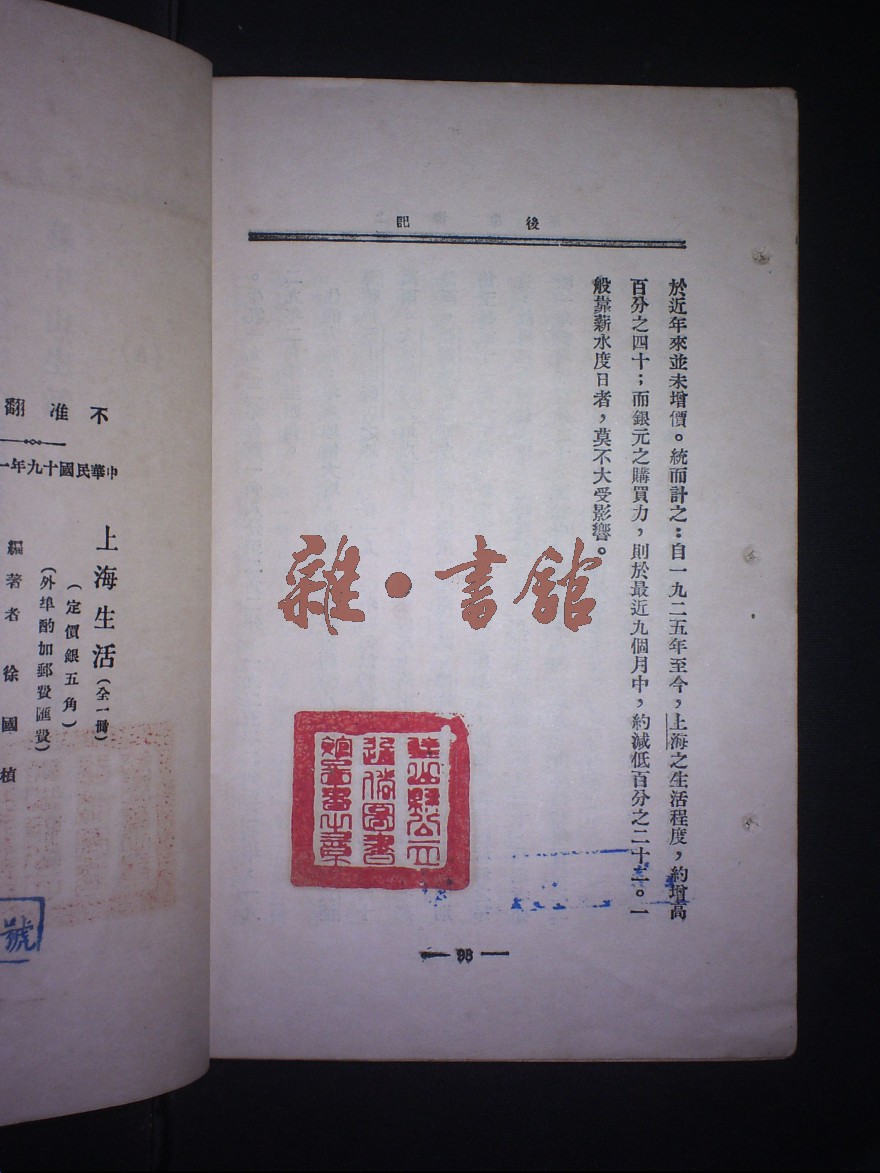 後記
於近年來並未增價。統而計之：自一九二五年至今，上海之生活程度，約增高
百分之四十；而銀元之購買力，則於最近九個月中，約減低百分之二十一。一
般靠薪水度日者，莫不大受影響。
雜·書館
通俗圖書
館藏書之章
98
不准翻
中華民國十九年一
上海生活（全一冊）
（定價銀五角）
（外埠酌加郵費匯費）
編著者 徐國楨
號